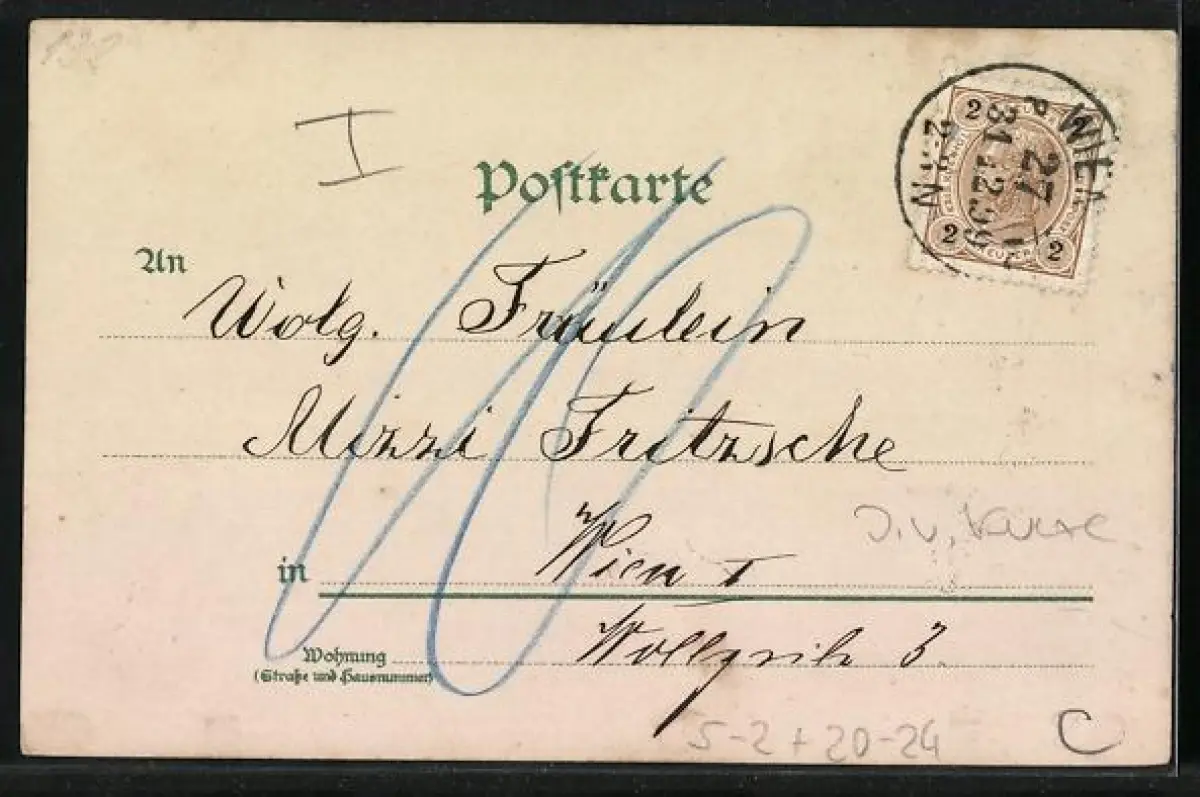 130
I
Postkarte
2 2 2
WIEN
27
31 12 99
2-3 N
An
Wolg. Fräulein
Mizzi Fritzsche
in Wien I
Wohnung Wollzeile 3.
(Straße und Hausnummer)
10
5-2+20-24
C